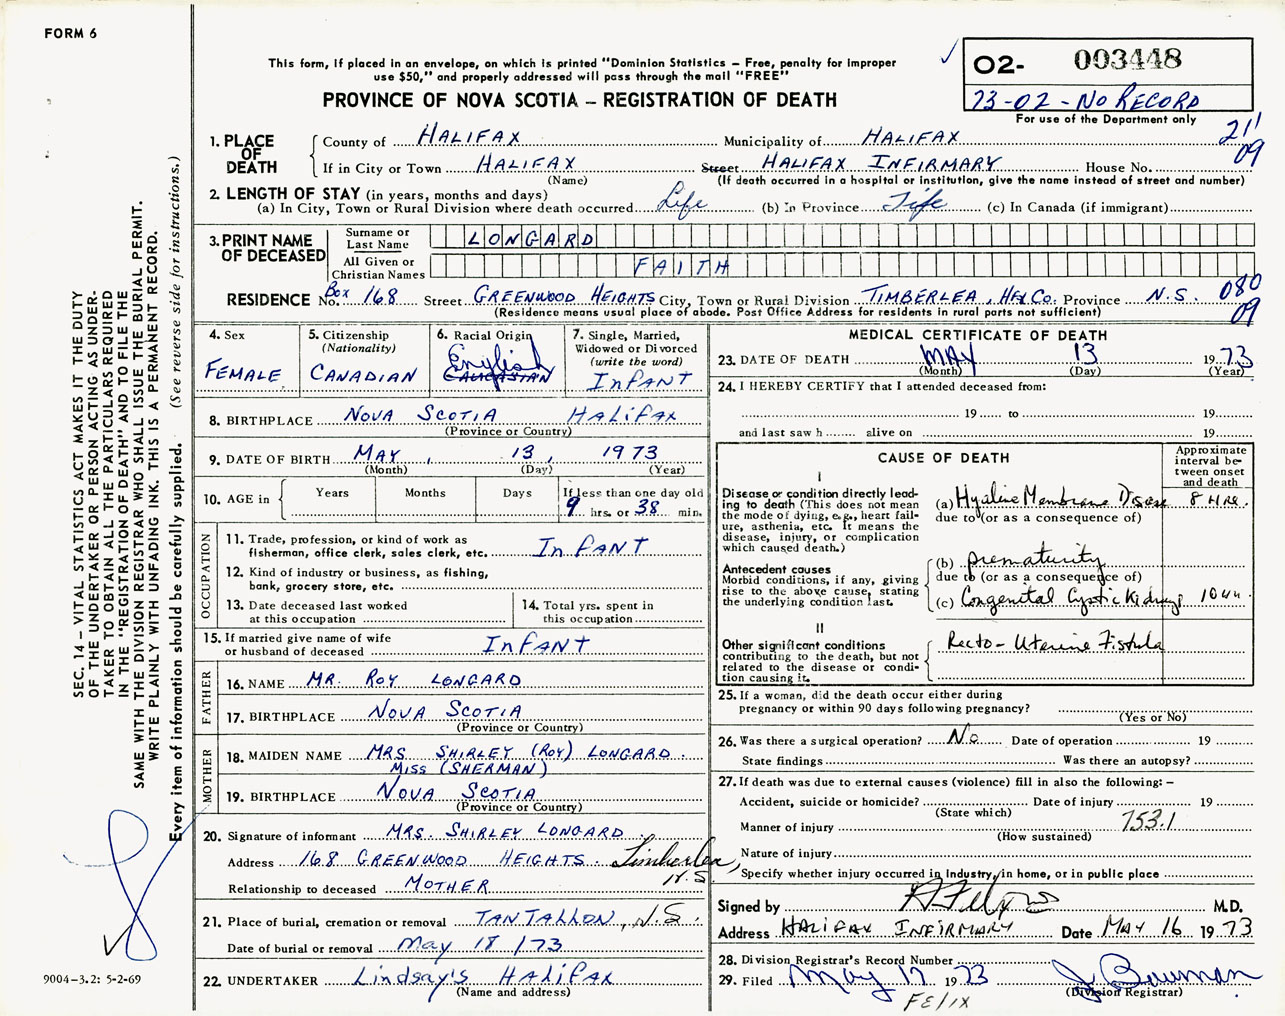 FORM 6
This form, if placed in an envelope, on which is printed "Dominion Statistics – Free, penalty for improper
use $50," and properly addressed will pass through the mail "FREE"
PROVINCE OF NOVA SCOTIA – REGISTRATION OF DEATH
02- 003448
73-02 - NO RECORD
For use of the Department only
211
09
SEC. 14 – VITAL STATISTICS ACT MAKES IT THE DUTY
OF THE UNDERTAKER OR PERSON ACTING AS UNDER-
TAKER TO OBTAIN ALL THE PARTICULARS REQUIRED
IN THE "REGISTRATION OF DEATH" AND TO FILE THE
SAME WITH THE DIVISION REGISTRAR WHO SHALL ISSUE THE BURIAL PERMIT.
WRITE PLAINLY WITH UNFADING INK. THIS IS A PERMANENT RECORD.
Every item of information should be carefully supplied. (See reverse side for instructions.)
1. PLACE OF DEATH
County of HALIFAX Municipality of HALIFAX
If in City or Town HALIFAX Street HALIFAX INFIRMARY House No.
(Name) (If death occurred in a hospital or institution, give the name instead of street and number)
2. LENGTH OF STAY (in years, months and days)
(a) In City, Town or Rural Division where death occurred Life (b) In Province Life (c) In Canada (if immigrant)
3. PRINT NAME OF DECEASED
Surname or Last Name LONGARD
All Given or Christian Names FAITH
RESIDENCE No. Box 168 Street GREENWOOD HEIGHTS City, Town or Rural Division TIMBERLEA, HFX CO. Province N.S. 080
09
(Residence means usual place of abode. Post Office Address for residents in rural parts not sufficient)
4. Sex FEMALE
5. Citizenship (Nationality) CANADIAN
6. Racial Origin English CAUCASIAN
7. Single, Married, Widowed or Divorced (write the word) INFANT
8. BIRTHPLACE NOVA SCOTIA HALIFAX
(Province or Country)
9. DATE OF BIRTH MAY, 13, 1973
(Month) (Day) (Year)
10. AGE in Years Months Days If less than one day old
9 hrs. or 38 min.
OCCUPATION
11. Trade, profession, or kind of work as
fisherman, office clerk, sales clerk, etc. INFANT
12. Kind of industry or business, as fishing,
bank, grocery store, etc.
13. Date deceased last worked
at this occupation
14. Total yrs. spent in
this occupation
15. If married give name of wife
or husband of deceased INFANT
FATHER
16. NAME MR. ROY LONGARD
17. BIRTHPLACE NOVA SCOTIA
(Province or Country)
MOTHER
18. MAIDEN NAME MRS. SHIRLEY (ROY) LONGARD.
MISS (SHERMAN)
19. BIRTHPLACE NOVA SCOTIA
(Province or Country)
20. Signature of informant MRS. SHIRLEY LONGARD
Address 168 GREENWOOD HEIGHTS. Timberlea,
N.S.
Relationship to deceased MOTHER
21. Place of burial, cremation or removal TANTALLON, N.S.
Date of burial or removal May 18/73
22. UNDERTAKER Lindsay's HALIFAX
(Name and address)
9004-3.2: 5-2-69
MEDICAL CERTIFICATE OF DEATH
23. DATE OF DEATH MAY 13 1973
(Month) (Day) (Year)
24. I HEREBY CERTIFY that I attended deceased from:
19 to 19
and last saw h alive on 19
CAUSE OF DEATH
Approximate interval between onset and death
I
Disease or condition directly lead-
ing to death (This does not mean
the mode of dying, e.g., heart fail-
ure, asthenia, etc. It means the
disease, injury, or complication
which caused death.)
(a) Hyaline Membrane Disease 8 HRS.
due to (or as a consequence of)
Antecedent causes
Morbid conditions, if any, giving
rise to the above cause, stating
the underlying condition last.
(b) prematurity
due to (or as a consequence of)
(c) Congenital Cystic Kidneys
II
Other significant conditions
contributing to the death, but not
related to the disease or condi-
tion causing it.
Recto-Uterine Fistula
25. If a woman, did the death occur either during
pregnancy or within 90 days following pregnancy?
(Yes or No)
26. Was there a surgical operation? No Date of operation 19
State findings Was there an autopsy?
27. If death was due to external causes (violence) fill in also the following: –
Accident, suicide or homicide? Date of injury 19
(State which)
Manner of injury 753.1
(How sustained)
Nature of injury
Specify whether injury occurred in industry, in home, or in public place
Signed by M.D.
Address HALIFAX INFIRMARY Date MAY 16 1973
28. Division Registrar's Record Number
29. Filed May 17 1973 J Bauman
(Division Registrar)
FELIX